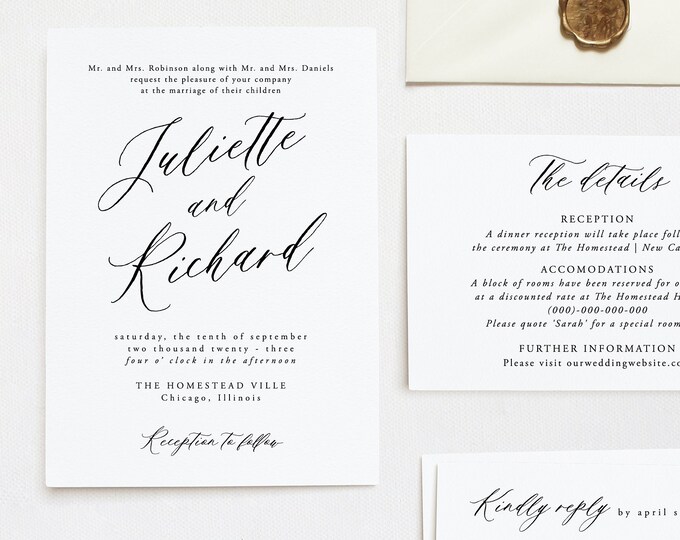 Mr. and Mrs. Robinson along with Mr. and Mrs. Daniels
request the pleasure of your company
at the marriage of their children
Juliette
and
Richard
saturday, the tenth of september
two thousand twenty - three
four o' clock in the afternoon
THE HOMESTEAD VILLE
Chicago, Illinois
Reception to follow
The details
RECEPTION
A dinner reception will take place follo
the ceremony at The Homestead | New Ca
ACCOMODATIONS
A block of rooms have been reserved for o
at a discounted rate at The Homestead H
(000)-000-000-000
Please quote 'Sarah' for a special room
FURTHER INFORMATION
Please visit ourweddingwebsite.co
Kindly reply by april s